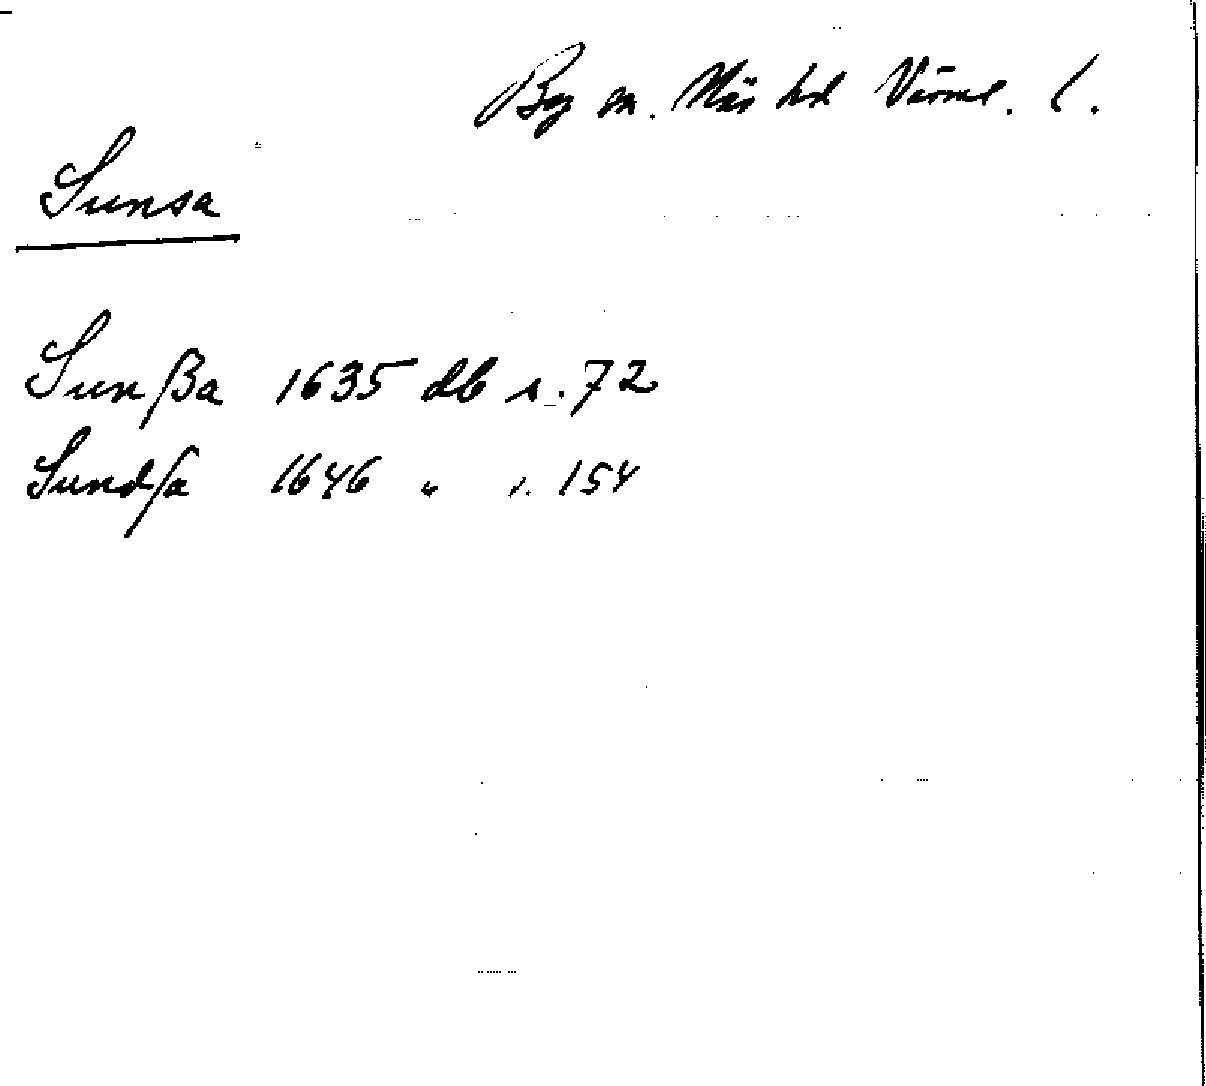 By sn. Näs hd Värml. l.
Sunsa
Sunßa 1635 db s. 72
Sundsa 1646 " s. 154